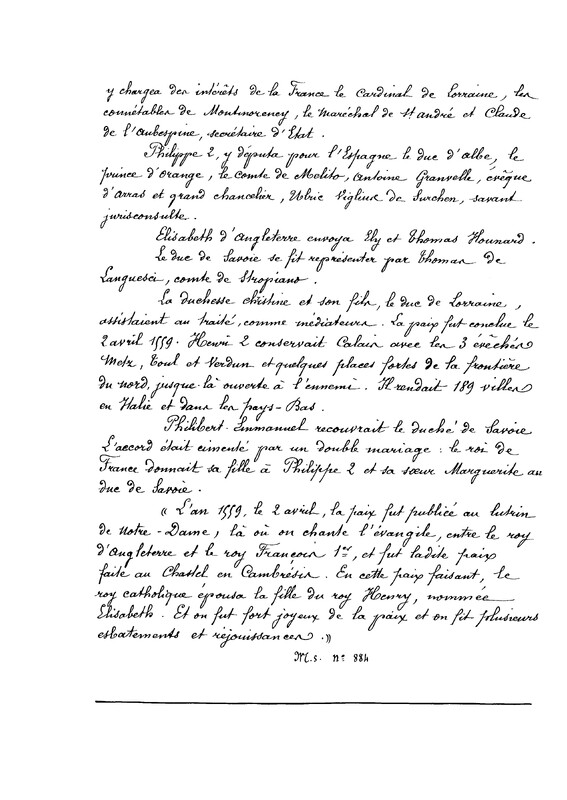 y chargea des intérêts de la France le Cardinal de Lorraine, les
connétables de Montmorency, le Maréchal de St André et Claude
de l'Aubespine, secrétaire d'Etat.
Philippe 2, y députa pour l'Espagne le duc d'Albe, le
prince d'Orange, le comte de Melito, Antoine Granvelle, évêque
d'Arras et grand chancelier, Ulric Viglius de Surchen, savant
jurisconsulte.
Elisabeth d'Angleterre envoya Ely et Thomas Hounard.
Le duc de Savoie se fit représenter par Thomas de
Languesci, comte de Stropiano.
La duchesse Christine et son fils, le duc de Lorraine,
assistaient au traité, comme médiateurs. La paix fut conclue le
2 avril 1559. Henri 2 conservait Calais avec les 3 évêchés
Metz, Toul et Verdun et quelques places fortes de la frontière
du nord, jusque là ouverte à l'ennemi. Il rendait 189 villes
en Italie et dans les pays-Bas.
Philibert-Emmanuel recouvrait le duché de Savoie
L'accord était cimenté par un double mariage : le roi de
France donnait sa fille à Philippe 2 et sa sœur Marguerite au
duc de Savoie.
« L'an 1559, le 2 avril, la paix fut publiée au lutrin
de Notre-Dame, là où on chante l'évangile, entre le roy
d'Angleterre et le roy Francois 1er, et fut ladite paix
faite au Chastel en Cambrésis. En cette paix faisant, le
roy catholique épousa la fille du roy Henry, nommée
Elisabeth. Et on fut fort joyeux de la paix et on fit plusieurs
esbatements et réjouissances.»
M.s. n° 884